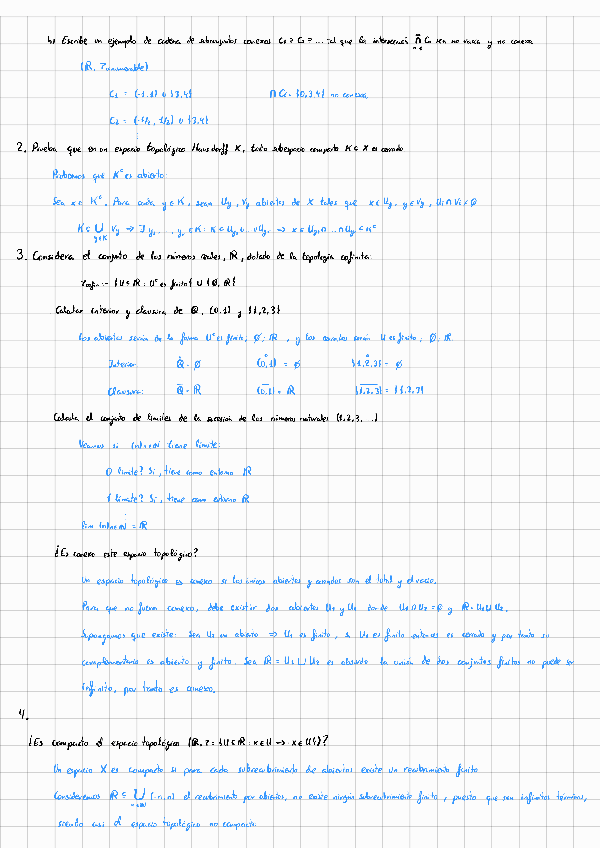 b) Escribe un ejemplo de cadena de subconjuntos conexos C₁ ⊇ C₂ ⊇ ... tal que la intersección ∩ Cᵢ sea no vacía y no conexa
(ℝ, τ numerable)
C₁ = (-1,1) ∪ {3,4} ∩ Cᵢ = {0,3,4} no conexa.
C₂ = (-1/2, 1/2) ∪ {3,4}
2. Prueba que en un espacio topológico Hausdorff X, todo subespacio compacto K ⊆ X es cerrado
Probamos que Kᶜ es abierto:
Sea x ∈ Kᶜ. Para cada y ∈ K, sean Uy, Vy abiertos de X tales que x ∈ Uy, y ∈ Vy, Uᵢ ∩ Vᵢ = ∅
K ⊆ ∪ Vy → ∃ y₁, ..., yₙ ∈ K : K ⊆ Uy₁ ∪ ... ∪ Vyₙ ⇒ x ∈ Uy₁ ∩ ... ∩ Uyₙ ⊂ Kᶜ
y∈K
3. Considera el conjunto de los números reales, ℝ, dotado de la topología cofinita:
τcofin := {U ⊆ ℝ : Uᶜ es finito} ∪ {∅, ℝ}
Calcular interior y clausura de ℚ, (0,1) y {1,2,3}
Los abiertos serán de la forma Uᶜ es finito, ∅, ℝ, y los cerrados serán U es finito, ∅, ℝ
Interior: ℚ̊ = ∅ (0,1)˚ = ∅ {1,2,3}˚ = ∅
Clausura: ℚ̅ = ℝ (0,1) = ℝ {1,2,3} = {1,2,3}
Calcula el conjunto de límites de la sucesión de los números naturales (1,2,3,...)
Veamos si (n)n∈ℕ tiene límite:
0 límite? Sí, tiene como entorno ℝ
1 límite? Sí, tiene como entorno ℝ
lim (n)n∈ℕ = ℝ
¿Es conexo este espacio topológico?
Un espacio topológico es conexo si los únicos abiertos y cerrados son el total y el vacío.
Para que no fuera conexo, debe existir dos abiertos U₁ y U₂ donde U₁ ∩ U₂ = ∅ y ℝ = U₁ ⊔ U₂.
Supongamos que existe: Sea U₁ un abierto ⇒ U₁ es finito, si U₁ es finito entonces es cerrado y por tanto su
complementario es abierto y finito. Sea ℝ = U₁ ⊔ U₂ es absurdo la unión de dos conjuntos finitos no puede ser
infinito, por tanto es conexo.
4.
¿Es compacto el espacio topológico (ℝ, τ = {U ⊆ ℝ : x ∈ U → -x ∈ U})?
Un espacio X es compacto si para cada subrecubrimiento de abiertos existe un recubrimiento finito
Consideremos ℝ ⊆ ∪ (-n,n) el recubrimiento por abiertos, no existe ningún subrecubrimiento finito, puesto que son infinitos términos,
n∈ℕ
siendo así el espacio topológico no compacto.